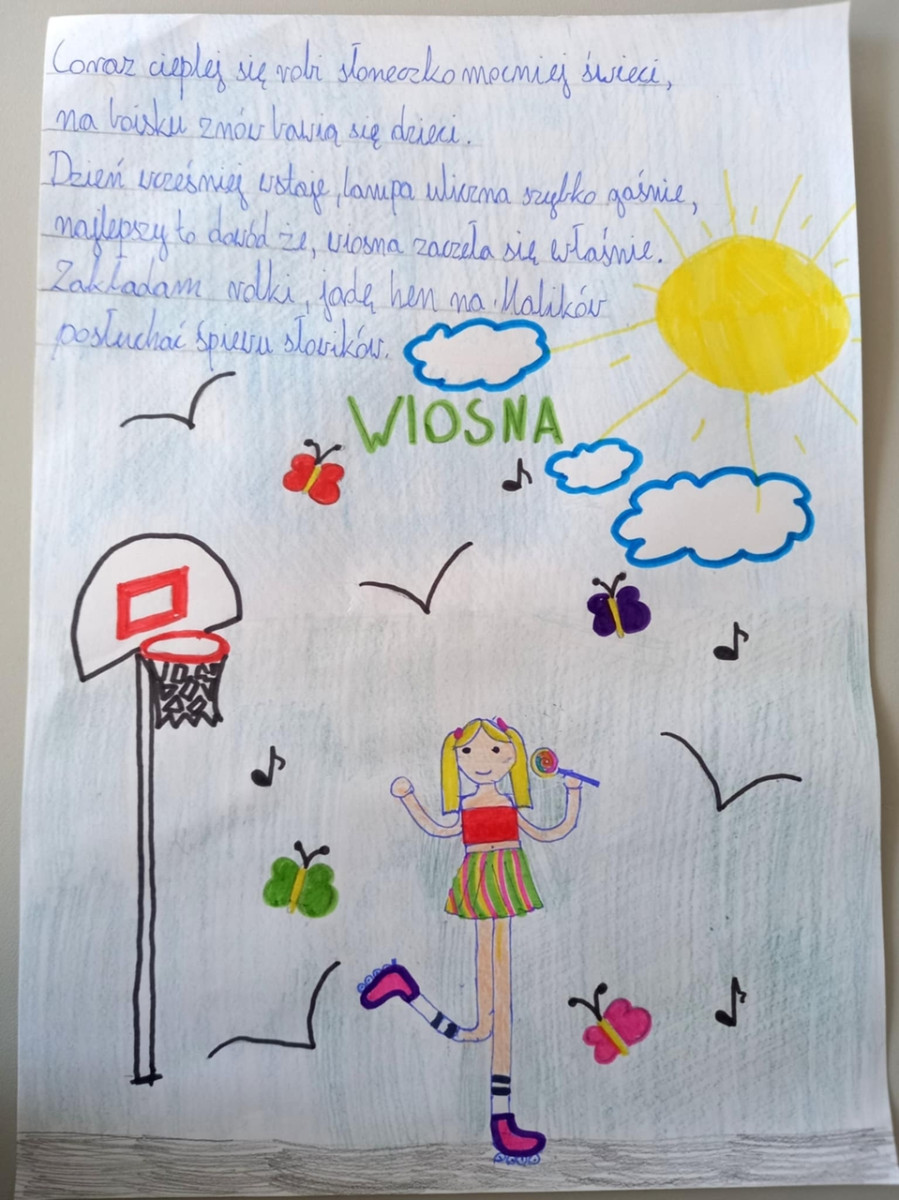 Coraz cieplej się robi słoneczko mocniej świeci,
na boisku znów bawią się dzieci.
Dzień wcześniej wstaje, lampa uliczna szybko gaśnie,
najlepszy to dowód że, wiosna zaczęła się właśnie.
Zakładam rolki, jadę hen na Malików
posłuchać śpiewu słowików.
WIOSNA